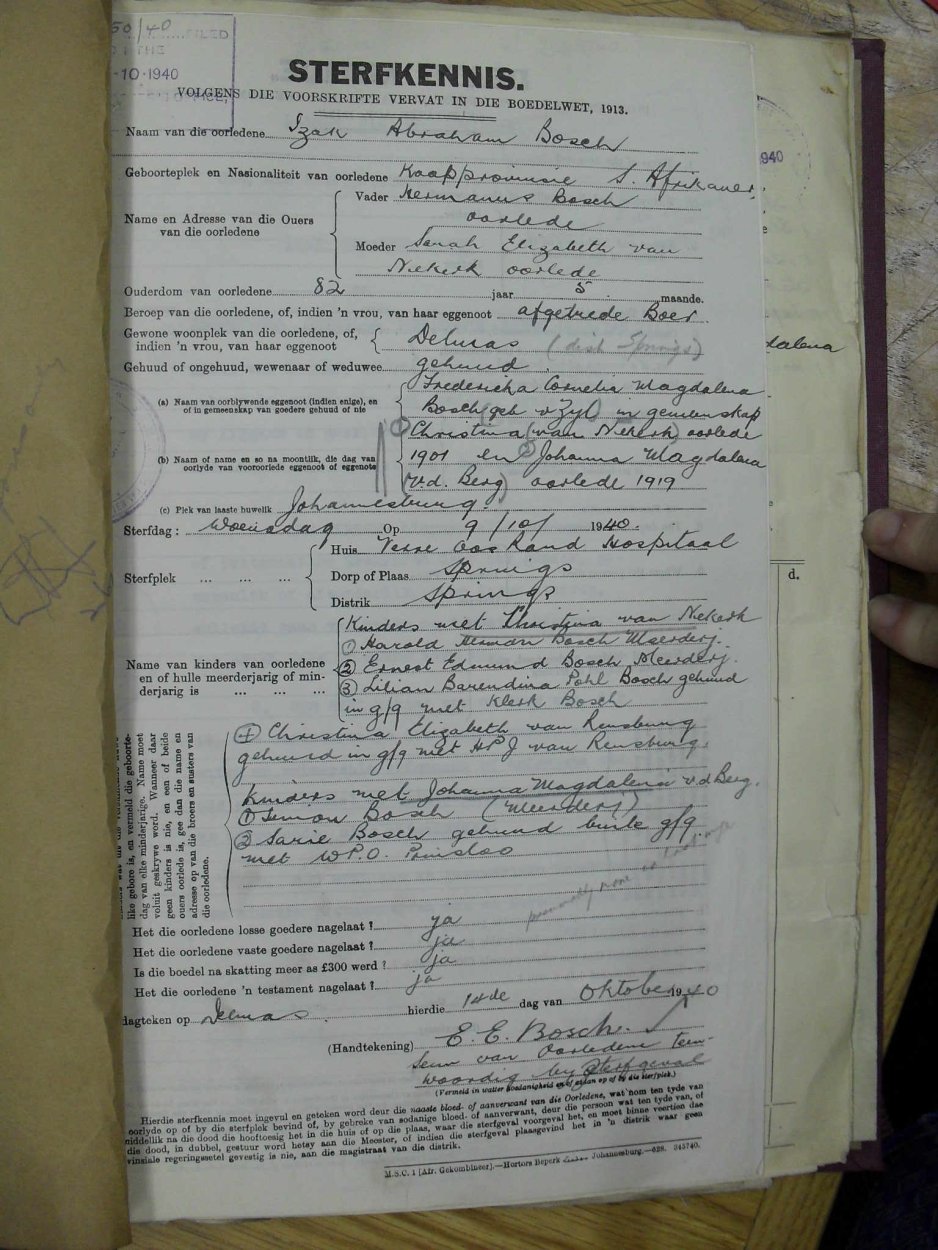 50/40 FILED
THE
-10-1940
STERFKENNIS.
VOLGENS DIE VOORSKRIFTE VERVAT IN DIE BOEDELWET, 1913.
Naam van die oorledene Izak Abraham Bosch
Geboorteplek en Nasionaliteit van oorledene Kaapprovinsie S. Afrikaner.
Name en Adresse van die Ouers van die oorledene
Vader Hermanus Bosch
oorlede
Moeder Sarah Elizabeth van
Niekerk oorlede
Ouderdom van oorledene 82 jaar 5 maande.
Beroep van die oorledene, of, indien 'n vrou, van haar eggenoot afgetrede Boer
Gewone woonplek van die oorledene, of, indien 'n vrou, van haar eggenoot
Delmas (dist Springs)
Gehuud of ongehuud, wewenaar of weduwee gehuud.
(a) Naam van oorblywende eggenoot (indien enige), en of in gemeenskap van goedere gehuud of nie
Fredericka Cornelia Magdalena
Bosch (geb v Zyl) in gemeenskap
(b) Naam of name en so na moontlik, die dag van oorlyde van vooroorlede eggenoot of eggenote
① Christina (van Niekerk) oorlede
1901 en ② Johanna Magdalena
(v.d. Berg) oorlede 1919
(c) Plek van laaste huwelik Johannesburg.
Sterfdag: Woensdag Op 9/10/ 1940.
Sterfplek ... ... ...
Huis Verre Oos Rand Hospitaal
Dorp of Plaas Springs
Distrik Springs
Name van kinders van oorledene en of hulle meerderjarig of minderjarig is ... ... ...
Kinders met Christina van Niekerk
① Harold Herman Bosch Meerderj.
② Ernest Edmund Bosch Meerderj.
③ Lilian Barendina Pohl Bosch gehuud
in g/g met Klerk Bosch
④ Christina Elizabeth van Rensburg
gehuud in g/g met H P J van Rensburg.
Kinders met Johanna Magdalena v.d Berg.
① Simon Bosch (Meerderj)
② Sarie Bosch gehuud buite g/g.
met W.P.O. Prinsloo
like gebore is, en vermeld die geboorte-
dag van elke minderjarige. Name moet
voluit geskrywe word. Wanneer daar
geen kinders is nie, en een of beide
ouers oorlede is, gee dan die name en
adresse op van die broers en susters van
die oorledene.
Het die oorledene losse goedere nagelaat? ja
Het die oorledene vaste goedere nagelaat? ja
Is die boedel na skatting meer as £300 werd? ja
Het die oorledene 'n testament nagelaat? ja
dagteken op Delmas. hierdie 14de dag van Oktober 1940
(Handtekening) E. E. Bosch.
Seun van Oorledene teen-
woordig by Sterfgeval
(Vermeld in watter hoedanigheid en of aldan op of by die sterfplek.)
Hierdie sterfkennis moet ingevul en geteken word deur die naaste bloed- of aanverwant van die Oorledene, wat ten tyde van
oorlyde op of by die sterfplek bevind of, by gebreke van sodanige bloed- of aanverwant, deur die persoon wat ten tyde van, of
middellik na die dood die hooftoesig het in die huis of op die plaas, waar die sterfgeval voorgeval het, en moet binne veertien dae
die dood, in dubbel, gestuur word hetsy aan die Meester, of indien die sterfgeval plaasgevind het in 'n distrik waar geen
vinsiale regeringssetel gevestig is nie, aan die magistraat van die distrik.
M.S.C. 1 [Afr. Gekombineer].—Hortors Beperk Johannesburg.—628. 345740.
940
dalena
d.